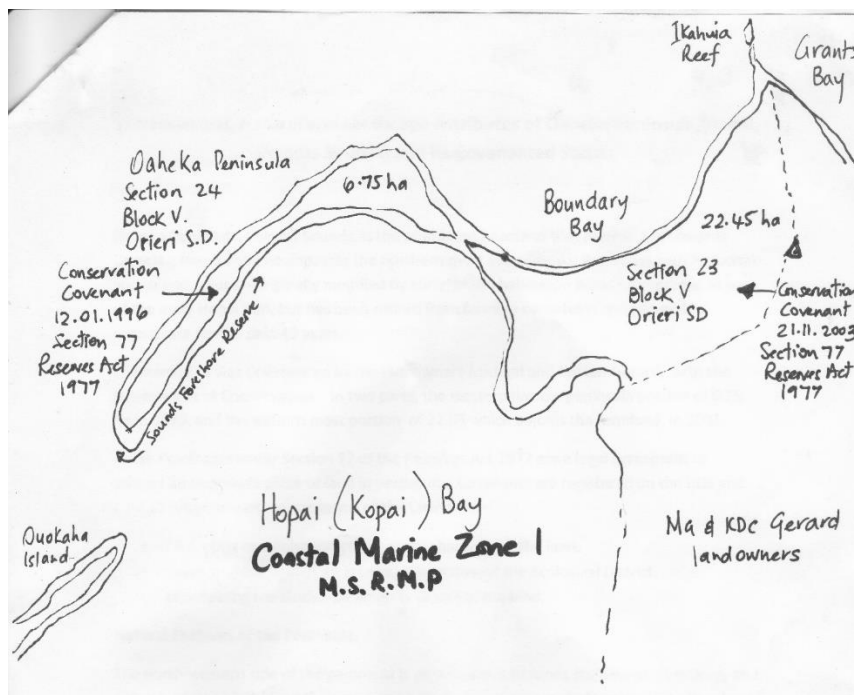 Ikahuia
Reef
Grants
Bay
Oaheka Peninsula
Section 24
Block V.
Orieri S.D.
6.75 ha
Boundary
Bay
22.45 ha
Conservation
Covenant
12.01.1996
Section 77
Reserves Act
1977
Sounds Foreshore Reserve
Section 23
Block V.
Orieri SD
Conservation
Covenant
21.11.2003
Section 77
Reserves Act
1977
Hopai (Kopai) Bay
Coastal Marine Zone 1
M.S.R.M.P
Ouokaha
Island
Ma & KDC Gerard
landowners